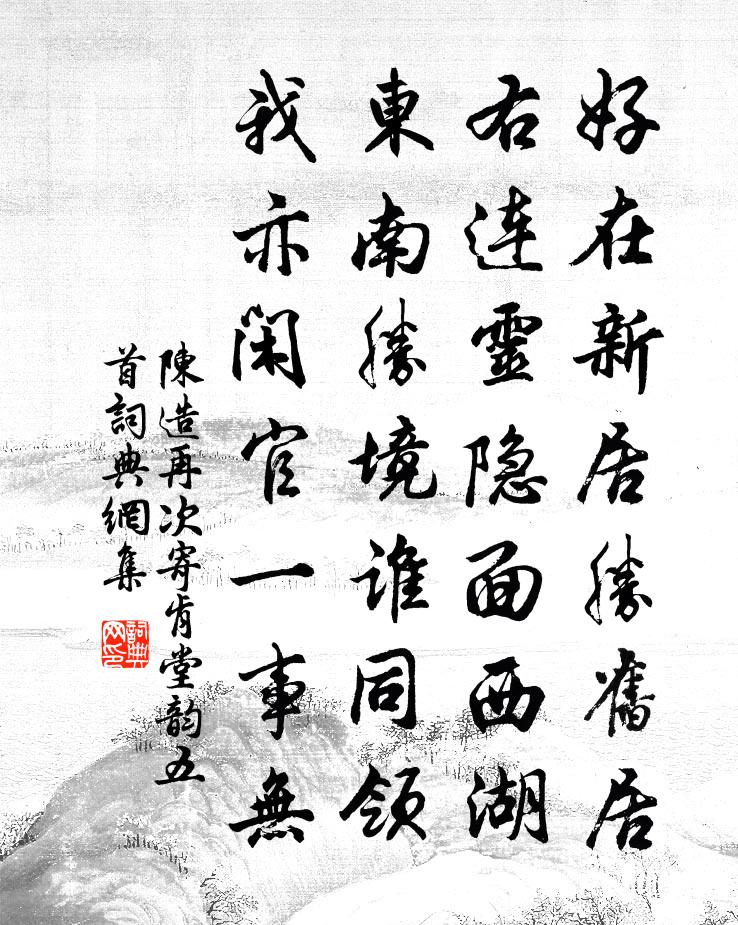 好在新居勝舊居
右連靈隐面西湖
東南勝境誰同領
我亦閑官一事無
陳造再次寄肯堂韵五
首詞典網集
詞典
网印